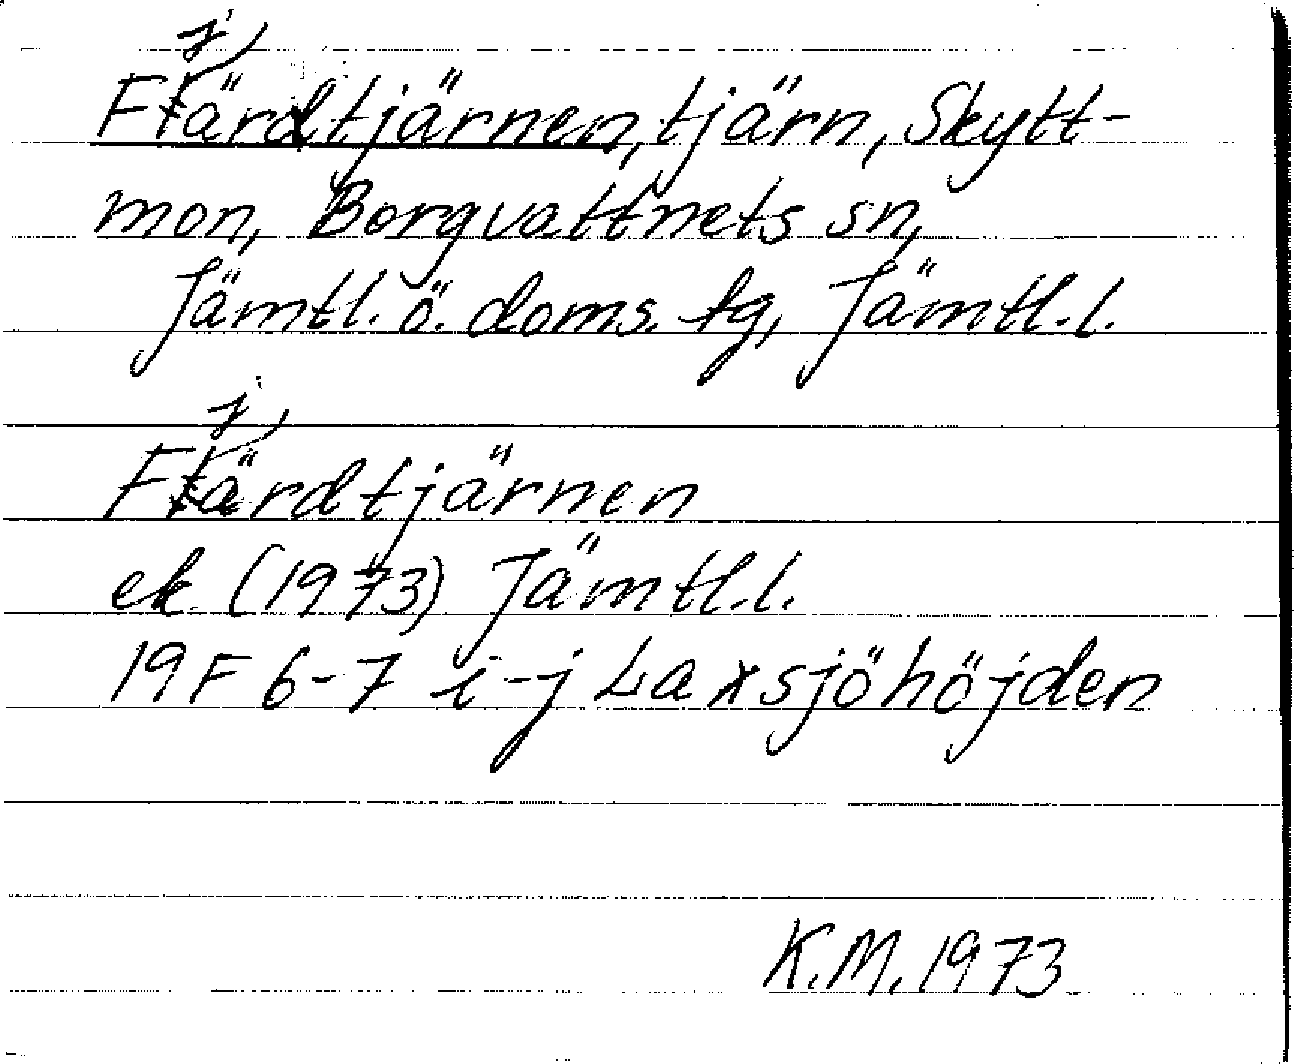 Fjärdtjärnen, tjärn, Skytt-
mon, Borgvattnets sn,
Jämtl. ö. doms. tg, Jämtl. l.
Fjärdtjärnen
ek (1973) Jämtl. l.
19F 6-7 i-j Laxsjöhöjden
K.M. 1973